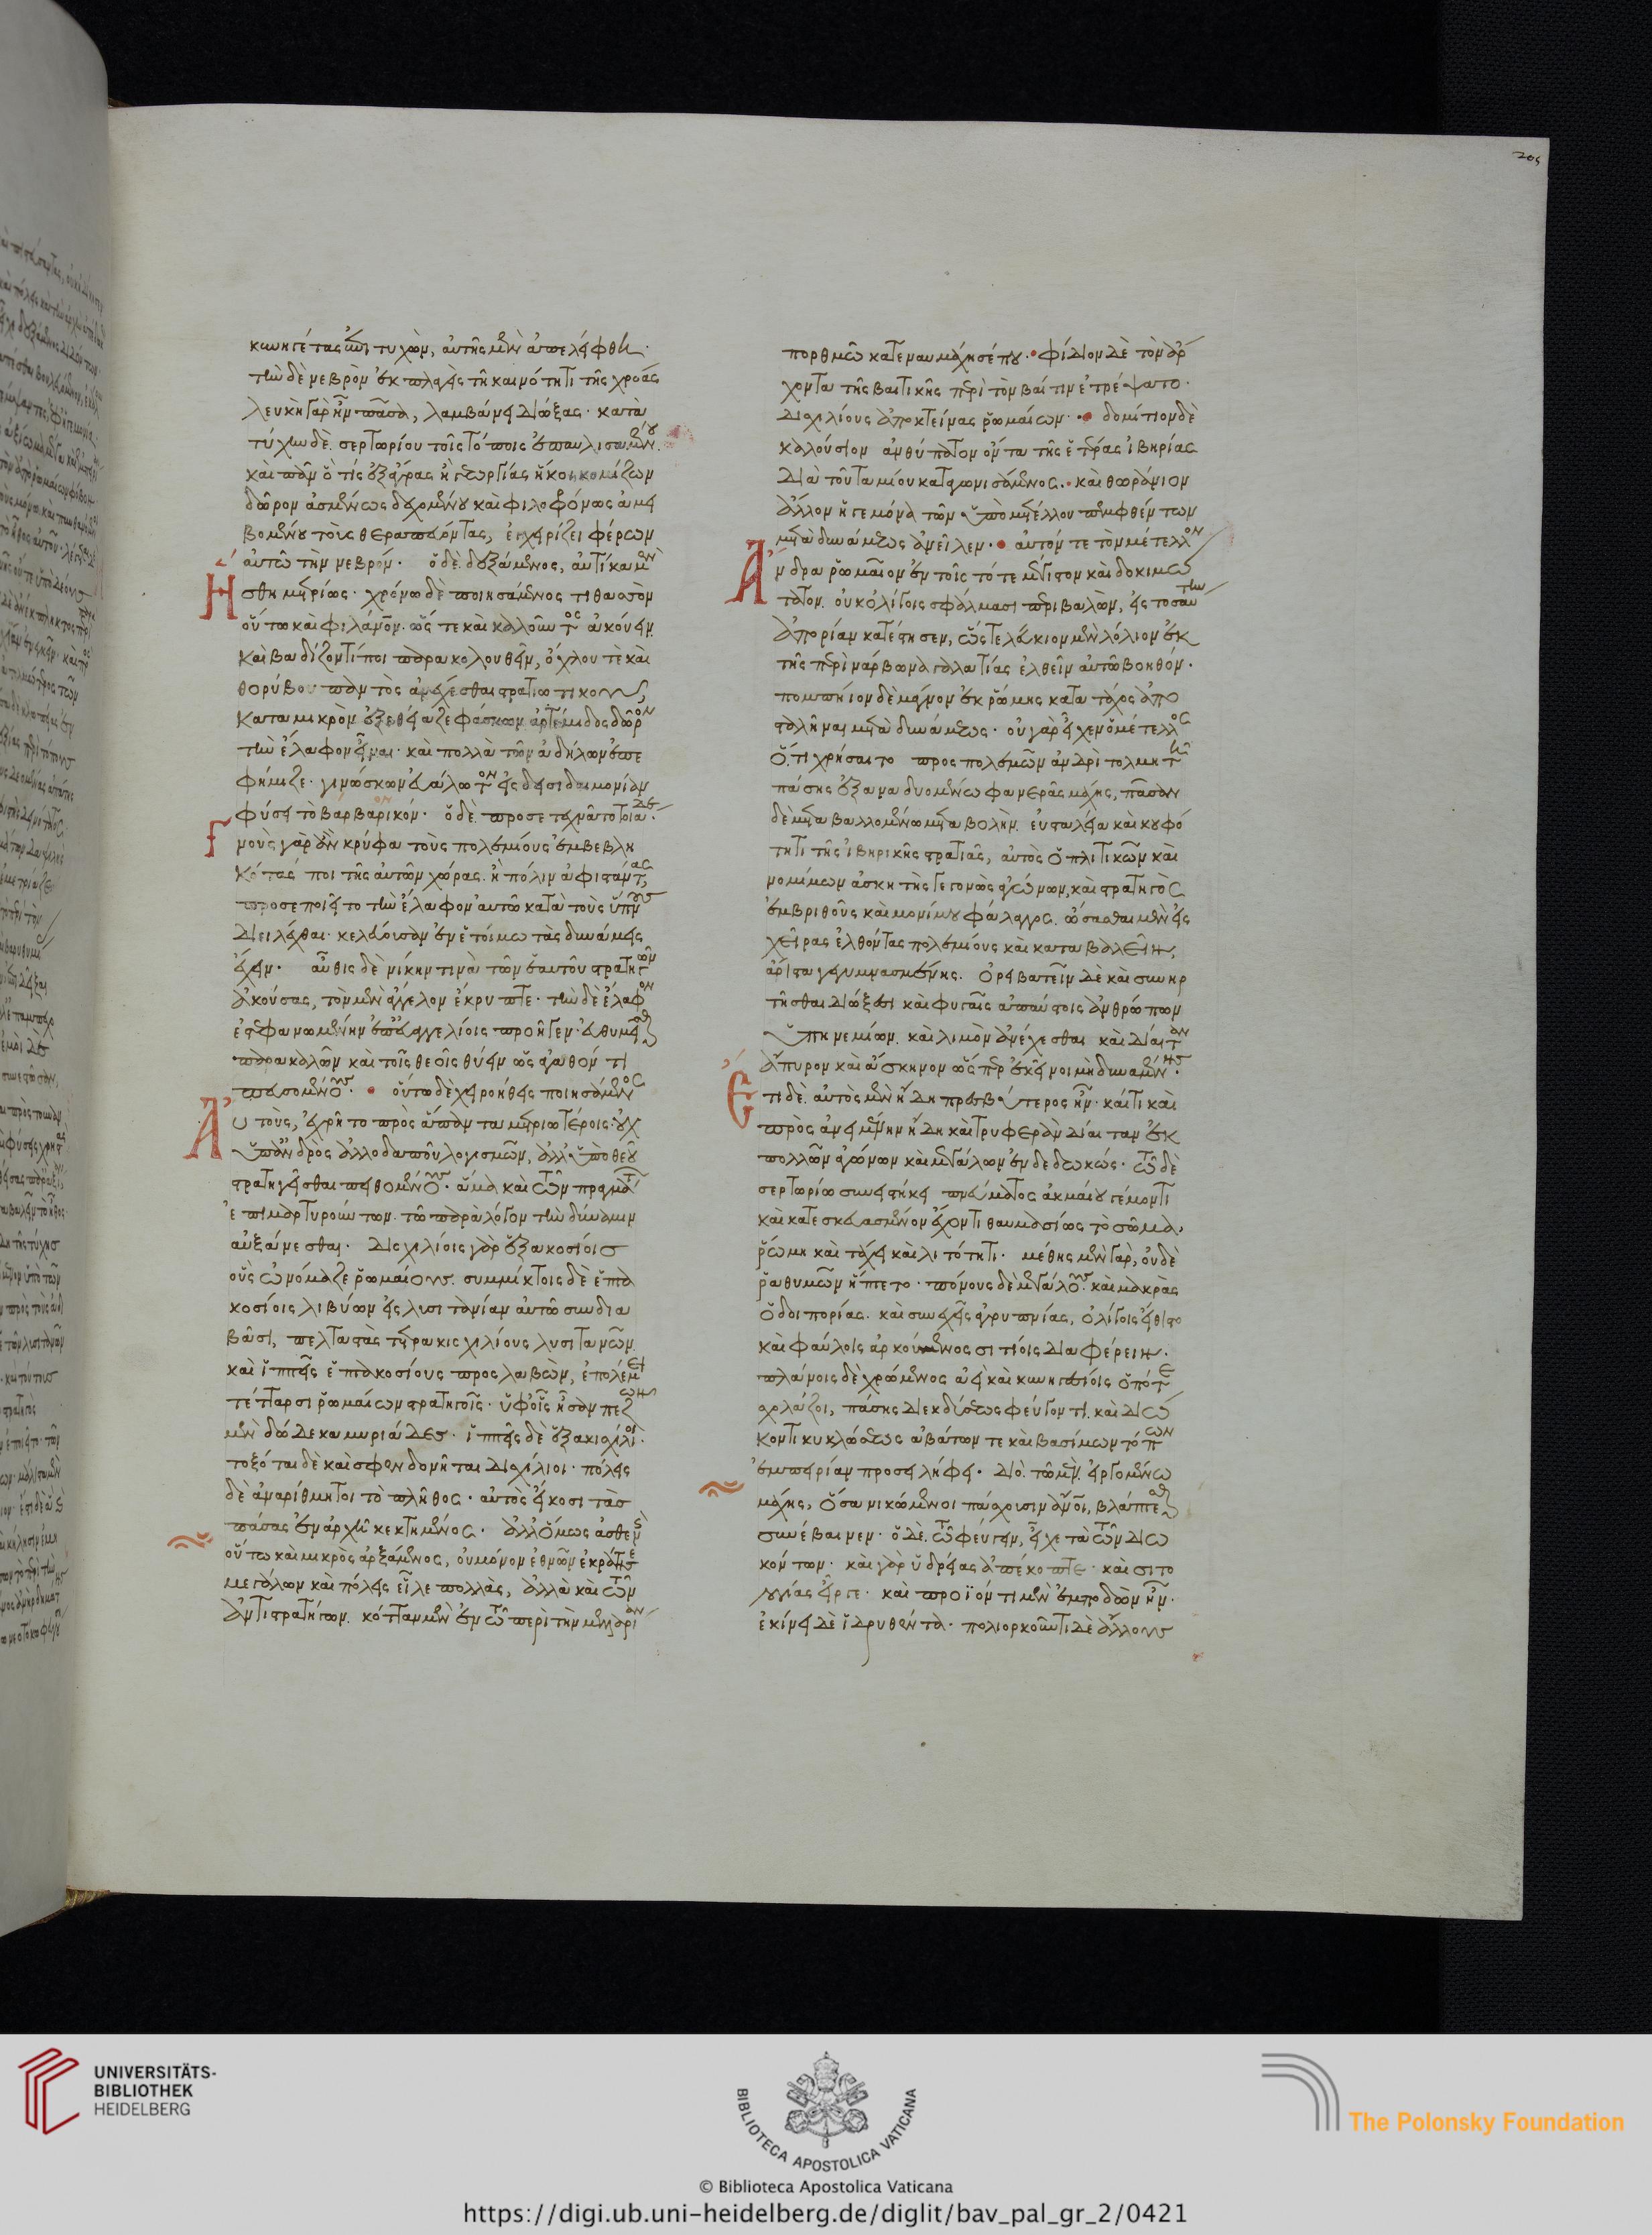 κυνηγέτας ἐπιτυχὼν, αὐτῆς μὲν ἀπελείφθη·
τὴν δὲ νεβρὸν ἐκπλαγεὶς τῇ καινότητι τῆς χρόας
λευκὴ γὰρ ἦν πᾶσα, λαμβάνει διώξας· κατὰ
τύχην δὲ σερτωρίου τοῖς τόποις ἐναυλισαμένου
καὶ πᾶν ὅ τις ἐξ ἄγρας ἢ γεωργίας ἥκοι κομίζων
δῶρον ἀσμένως δεχομένου καὶ φιλοφρόνως ἀμει
βομένου τοὺς θεραπεύοντας, ἐγχειρίζει φέρων
αὐτῷ τὴν νεβρόν. ὁ δὲ δεξάμενος, αὐτίκα μὲν
ἥσθη μετρίως· χρόνῳ δὲ ποιησάμενος τιθασὸν
οὕτω καὶ φιλάνον· ὥστε καὶ καλοῦντος ἀκούειν
καὶ βαδίζοντί ποι παρακολουθεῖν, ὄχλου τὲ καὶ
θορύβου παντὸς ἀνέχεσθαι στρατιωτικοῦ,
κατα μικρὸν ἐξεθείαζε φάσκων ἀρτέμιδος δῶρον
τὴν ἔλαφον εἶναι· καὶ πολλὰ τῶν ἀδήλων ἐπε
φήμιζε· γινώσκων εὐάλωτον εἰς δεισιδαιμονίαν
φύσει τὸ βαρβαρικόν. ὁ δὲ προσετεχνᾶτο τοιάδε·
γνοὺς γὰρ ἂν κρύφα τοὺς πολεμίους ἐμβεβλη
κότας ποι τῆς αὐτῶν χώρας· ἢ πόλιν ἀφιστάντας
προσεποιεῖτο τὴν ἔλαφον αὐτῷ κατὰ τοὺς ὕπνους
διειλέχθαι· κελεύουσαν ἐν ἑτοίμῳ τὰς δυνάμεις
ἔχειν. αὖθις δὲ νίκην τινὰ τῶν ἑαυτοῦ στρατηγῶν
ἀκούσας, τὸν μὲν ἄγγελον ἔκρυπτε· τὴν δὲ ἔλαφον
ἐστεφανωμένην ἐπ' εὐαγγελίοις προῆγεν· εὐθυμεῖσθαι
παρακαλῶν καὶ τοῖς θεοῖς θύειν ὡς ἀγαθόν τι
πευσομένους. οὕτω δὲ χειροήθεις ποιησάμενος
αὐτοὺς, ἐχρῆτο πρὸς ἅπαντα μετριωτέροις· οὐχ
ὑπ' ἀνδρὸς ἀλλοδαποῦ λογισμῶν, ἀλλ' ὑπὸ θεοῦ
στρατηγεῖσθαι πειθομένους· ἅμα καὶ τῶν πραγμάτων
ἐπιμαρτυρούντων· τῷ παρὰ λόγον τὴν δύναμιν
αὐξάνεσθαι. δισχιλίοις γὰρ ἑξακοσίοις
οὓς ὠνόμαζε ῥωμαίους. συμμίκτοις δὲ ἑπτα
κοσίοις λιβύων εἰς λυσιτανίαν αὐτῷ συνδια
βᾶσι, πελταστὰς τετρακισχιλίους λυσιτανῶν
καὶ ἱππεῖς ἑπτακοσίους προσλαβὼν, ἐπολέμει
τέτταρσι ῥωμαίων στρατηγοῖς· ὑφ' οἷς ἦσαν πεζῶν
μὲν δώδεκα μυριάδες· ἱππεῖς δὲ ἑξακισχίλιοι·
τοξόται δὲ καὶ σφενδονῆται δισχίλιοι· πόλεις
δὲ ἀναρίθμητοι τὸ πλῆθος· αὐτὸς εἴκοσι τὰς
πάσας ἐν ἀρχῇ κεκτημένος. ἀλλ' ὅμως ἀσθενὴς
οὕτω καὶ μικρὸς ἀρξάμενος, οὐ μόνον ἐθνῶν ἐκράτησε
μεγάλων καὶ πόλεις εἷλε πολλὰς, ἀλλὰ καὶ τῶν
ἀντιστρατήγων· κότταν μὲν ἐν τῷ περὶ τὴν μελλαρίαν
πορθμῷ κατεναυμάχησέ που· φίδιον δὲ τὸν ἄρ
χοντα τῆς βαιτικῆς περὶ τὸν βαίτιν ἐτρέψατο·
δισχιλίους ἀποκτείνας ῥωμαίων· δομίτιον δὲ
καλούσιον ἀνθύπατον ὄντα τῆς ἑτέρας ἰβηρίας
διὰ τοῦ ταμίου καταγωνισάμενος· καὶ θωράνιον
ἄλλον ἡγεμόνα τῶν ὑπὸ μετέλλου πεμφθέντων
μετὰ δυνάμεως ἀνεῖλεν· αὐτόν τε τὸν μέτελλον
ἄνδρα ῥωμαῖον ἐν τοῖς τότε μέγιστον καὶ δοκιμώ
τατον. οὐκ ὀλίγοις σφάλμασι περιβαλὼν, εἰς τοσαύτην
ἀπορίαν κατέστησεν, ὥστε λεύκιον μὲν λόλιον ἐκ
τῆς περὶ νάρβωνα γαλατίας ἐλθεῖν αὐτῷ βοηθόν.
πομπήιον δὲ μάγνον ἐκ ῥώμης κατα τάχος ἀπο
σταλῆναι μετὰ δυνάμεως· οὐ γὰρ εἶχεν ὁ μέτελλος
ὅ,τι χρήσαιτο προς πολεμῶν ἀνδρὶ τολμητῇ
πάσης ἐξαναδυομένῳ φανερᾶς μάχης, πᾶσαν
δὲ μεταβαλλομένῳ μεταβολὴν. εὐσταλείᾳ καὶ κουφό
τητι τῆς ἰβηρικῆς στρατιᾶς, αὐτὸς ὁπλιτικῶν καὶ
νομίμων ἀσκητὴς γεγονὼς ἀγώνων, καὶ στρατηγὸς
ἐμβριθοῦς καὶ μονίμου φάλαγγος. ὤσασθαι μὲν εἰς
χεῖρας ἐλθόντας πολεμίους καὶ καταβαλεῖν,
ἄριστα γεγυμνασμένης. ὀρειβατεῖν δὲ καὶ συνηρ
τῆσθαι διώξεσι καὶ φυγαῖς ἀπαύστοις ἀνθρώπων
ὑπηνεμίων. καὶ λιμὸν ἀνέχεσθαι καὶ δίαιταν
ἄπυρον καὶ ἄσκηνον ὥσπερ ἐκεῖνοι μὴ δυναμένης.
ἔτι δὲ αὐτὸς μὲν ἤδη πρεσβύτερος ἦν· καί τι καὶ
πρὸς ἀνειμένην ἤδη καὶ τρυφερὰν δίαιταν ἐκ
πολλῶν ἀγώνων καὶ μεγάλων ἐνδεδωκώς· τῷ δὲ
σερτωρίῳ συνειστήκει πνεύματος ἀκμαίου γέμοντι
καὶ κατεσκευασμένον ἔχοντι θαυμασίως τὸ σῶμα,
ῥώμῃ καὶ τάχει καὶ λιτότητι. μέθης μὲν γὰρ, οὐδὲ
ῥᾳθυμῶν ἥπτετο· πόνους δὲ μεγάλους καὶ μακρὰς
ὁδοιπορίας. καὶ συνεχεῖς ἀγρυπνίας, ὀλίγοις εἴθιστο
καὶ φαύλοις ἀρκούμενος σιτίοις διαφέρειν.
πλάνοις δὲ χρώμενος ἀεὶ καὶ κυνηγεσίοις ὁπότε
σχολάζοι, πάσης διεκδύσεως φεύγοντι. καὶ διώ
κοντι κυκλώσεως ἀβάτων τε καὶ βασίμων τόπων
ἐμπειρίαν προσειλήφει. διὸ τῷ μὲν εἰργομένῳ
μάχης, ὅσα νικώμενοι πάσχουσιν ἄνοι, βλάπτεσθαι
συνέβαινεν· ὁ δὲ τῷ φεύγειν, εἶχε τὰ τῶν διω
κόντων· καὶ γὰρ ὑδρείας ἀπέκοπτε· καὶ σιτο
λογίας εἶργε· καὶ προϊόντι μὲν ἐμποδὼν ἦν·
ἐκίνει δὲ ἱδρυθέντα· πολιορκοῦντι δὲ ἄλλους
UNIVERSITÄTS-
BIBLIOTHEK
HEIDELBERG
BIBLIOTECA APOSTOLICA VATICANA
The Polonsky Foundation
© Biblioteca Apostolica Vaticana
https://digi.ub.uni-heidelberg.de/diglit/bav_pal_gr_2/0421